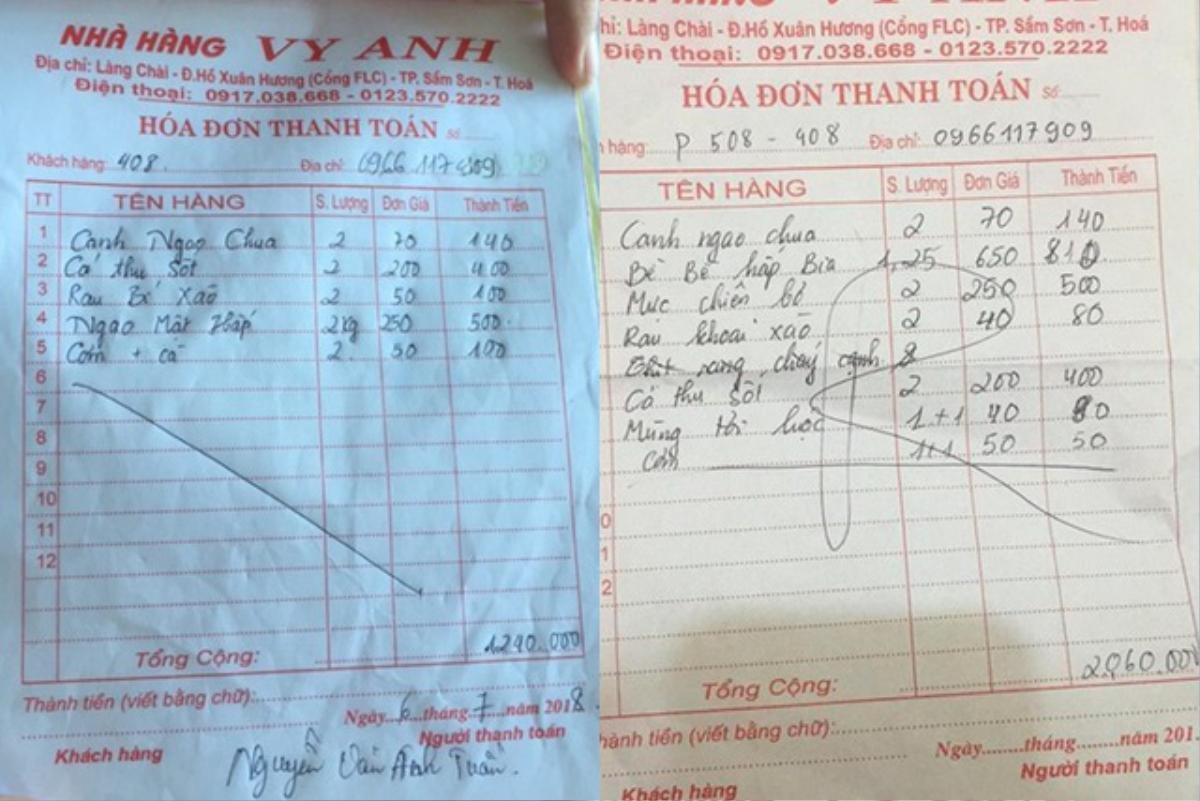 NHÀ HÀNG VY ANH
Địa chỉ: Làng Chài - Đ.Hồ Xuân Hương (Cổng FLC) - TP. Sầm Sơn - T. Hoá
Điện thoại: 0917.038.668 - 0123.570.2222
HÓA ĐƠN THANH TOÁN Số
Khách hàng: 408. Địa chỉ: 0966 117 909
TT TÊN HÀNG S. Lượng Đơn Giá Thành Tiền
1 Canh Ngao Chua 2 70 140
2 Cá thu sốt 2 200 400
3 Rau Bí Xào 2 50 100
4 Ngao Mật Hấp 2kg 250 500
5 Cơm + cà 2 50 100
6
7
8
9
10
11
12
Tổng Cộng: 1.240.000
Thành tiền (viết bằng chữ):
Ngày 6 tháng 7 năm 2018
Khách hàng Người thanh toán
Nguyễn Văn Anh Tuấn.
hỉ: Làng Chài - Đ.Hồ Xuân Hương (Cổng FLC) - TP. Sầm Sơn - T. Hoá
Điện thoại: 0917.038.668 - 0123.570.2222
HÓA ĐƠN THANH TOÁN Số
hàng: P 508 - 408 Địa chỉ: 0966117909
TÊN HÀNG S. Lượng Đơn Giá Thành Tiền
Canh ngao chua 2 70 140
Bề Bề hấp Bia 1,25 650 810
Mực chiên bơ 2 250 500
Rau khoai xào 2 40 80
rang cháy cạnh 2
Cá thu sốt 2 200 400
Mùng tơi luộc 1+1 40 80
Cơm 1+1 50 50
0
1
2
Tổng Cộng: 2.060.000
hành tiền (viết bằng chữ):
Ngày tháng năm 201
Khách hàng Người thanh toán